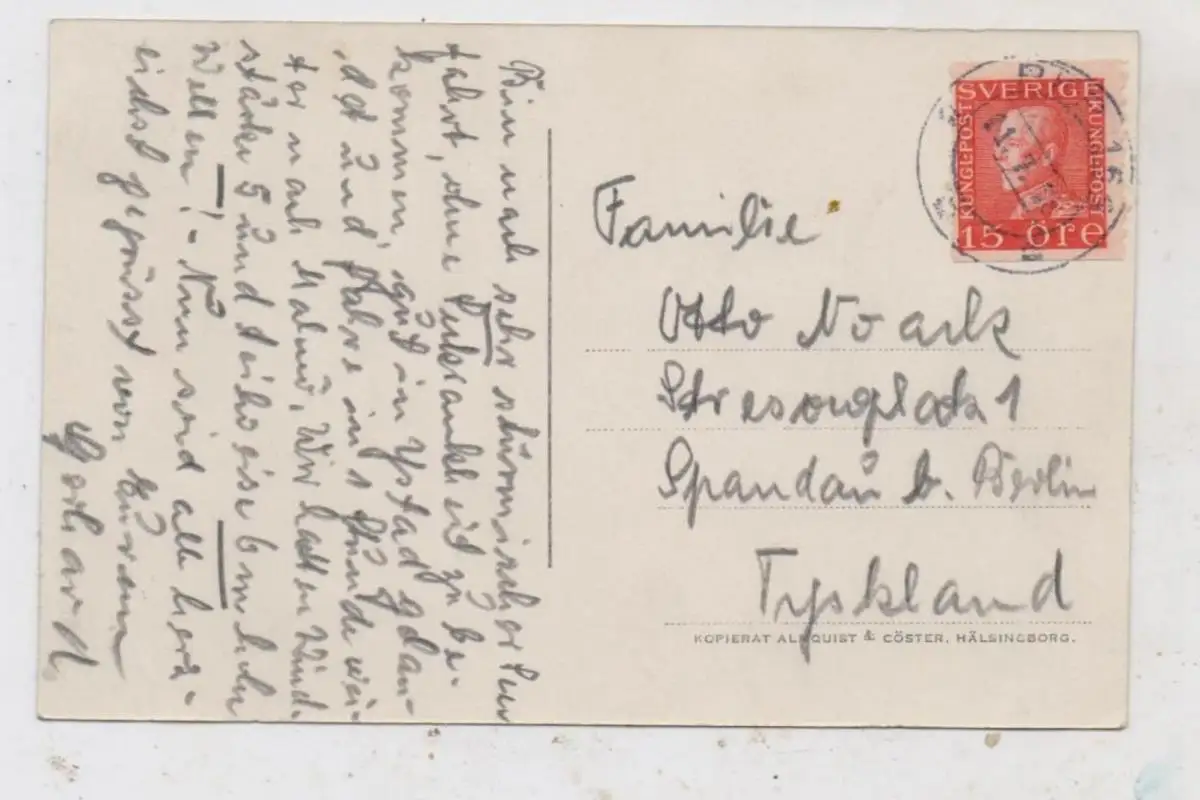 Bin nach sehr stürmischer See
fahrt, ohne Seekrankheit zu be-
kommen, gut in Ystad gelan-
det und fahre in 1 Stunde wei-
ter nach Malmö. Wir hatten Wind-
stärke 5 und teilweise 6 m hohe
Wellen! - Nun seid alle herz-
lichst gegrüsst von Eurem
Gerhard.
SVERIGE
KUNGL·POST
KUNGL·POST
15 ÖRE
Familie
Otto Noack
Stresowplatz 1
Spandau b. Berlin
Tyskland
KOPIERAT ALMQUIST & CÖSTER, HÄLSINGBORG.